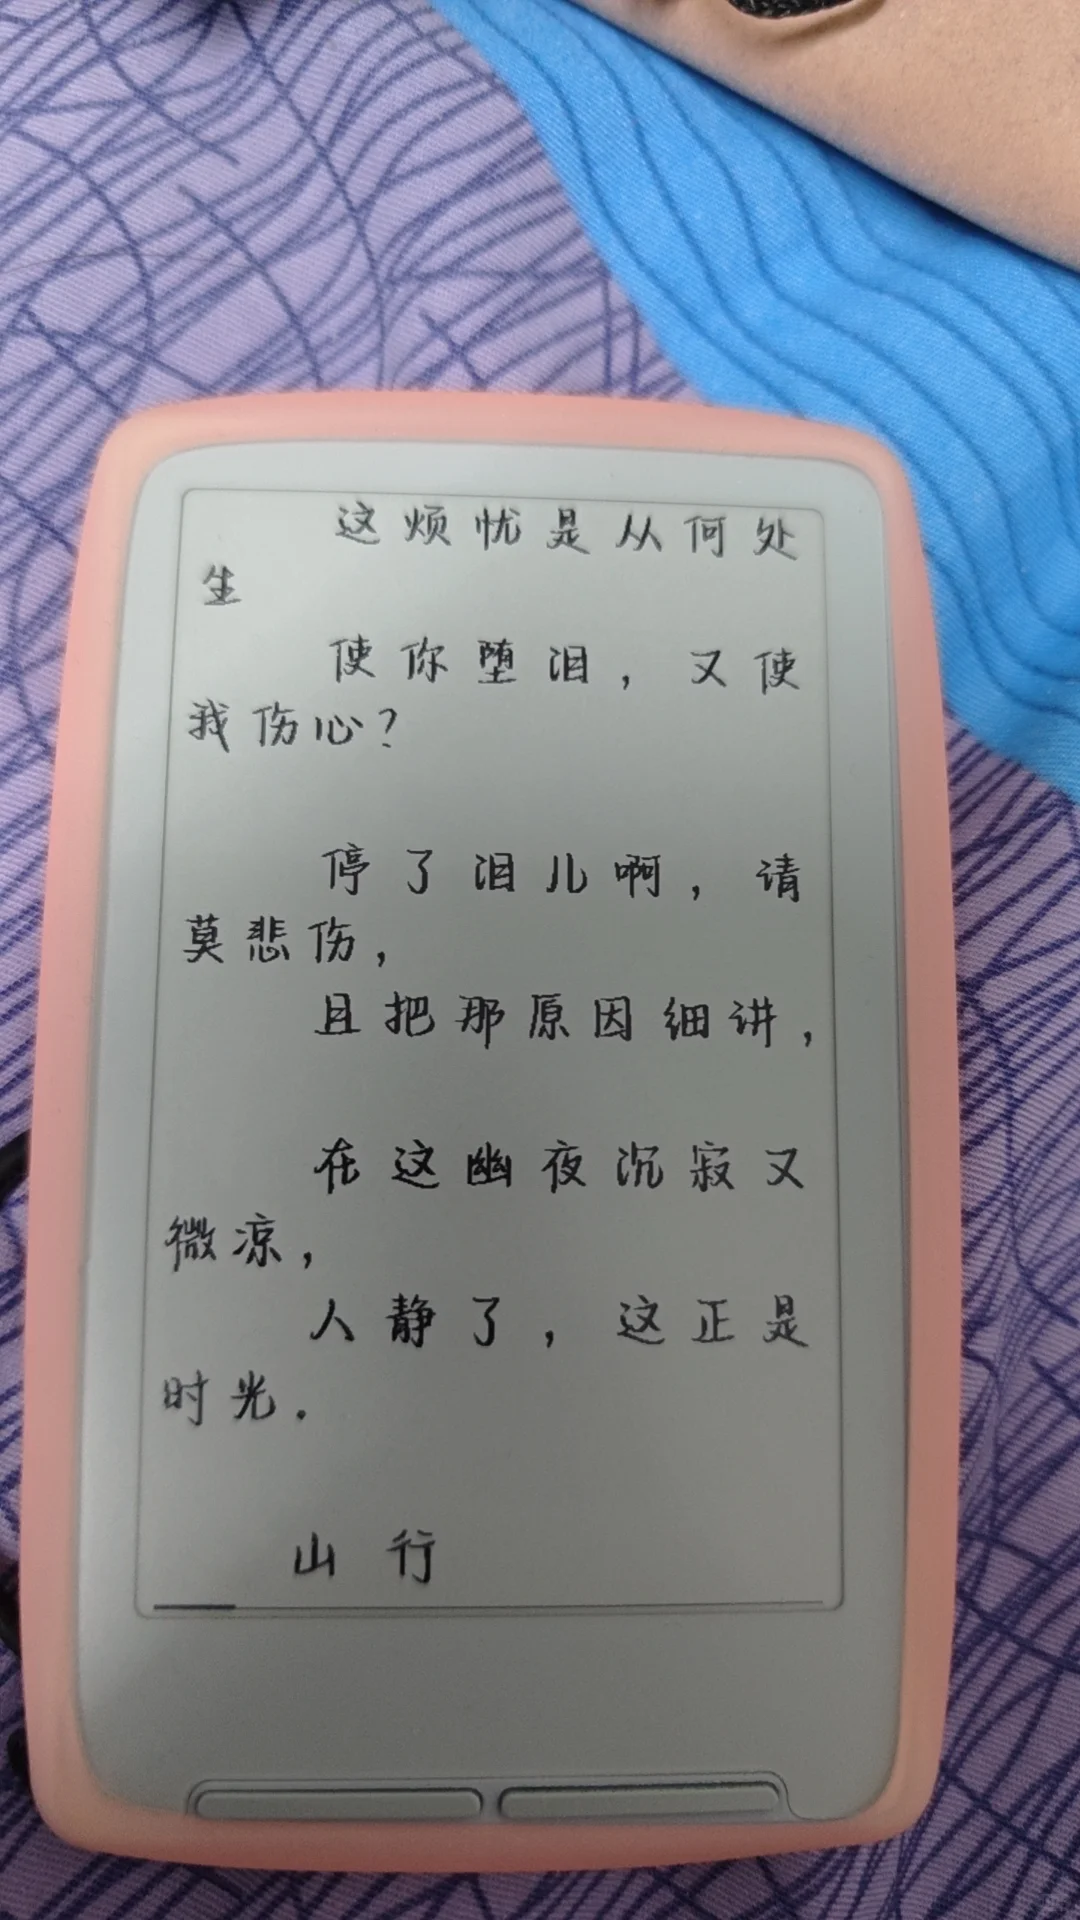 这烦忧是从何处
生
使你堕泪，又使
我伤心？
停了泪儿啊，请
莫悲伤，
且把那原因细讲，
在这幽夜沉寂又
微凉，
人静了，这正是
时光.
山行